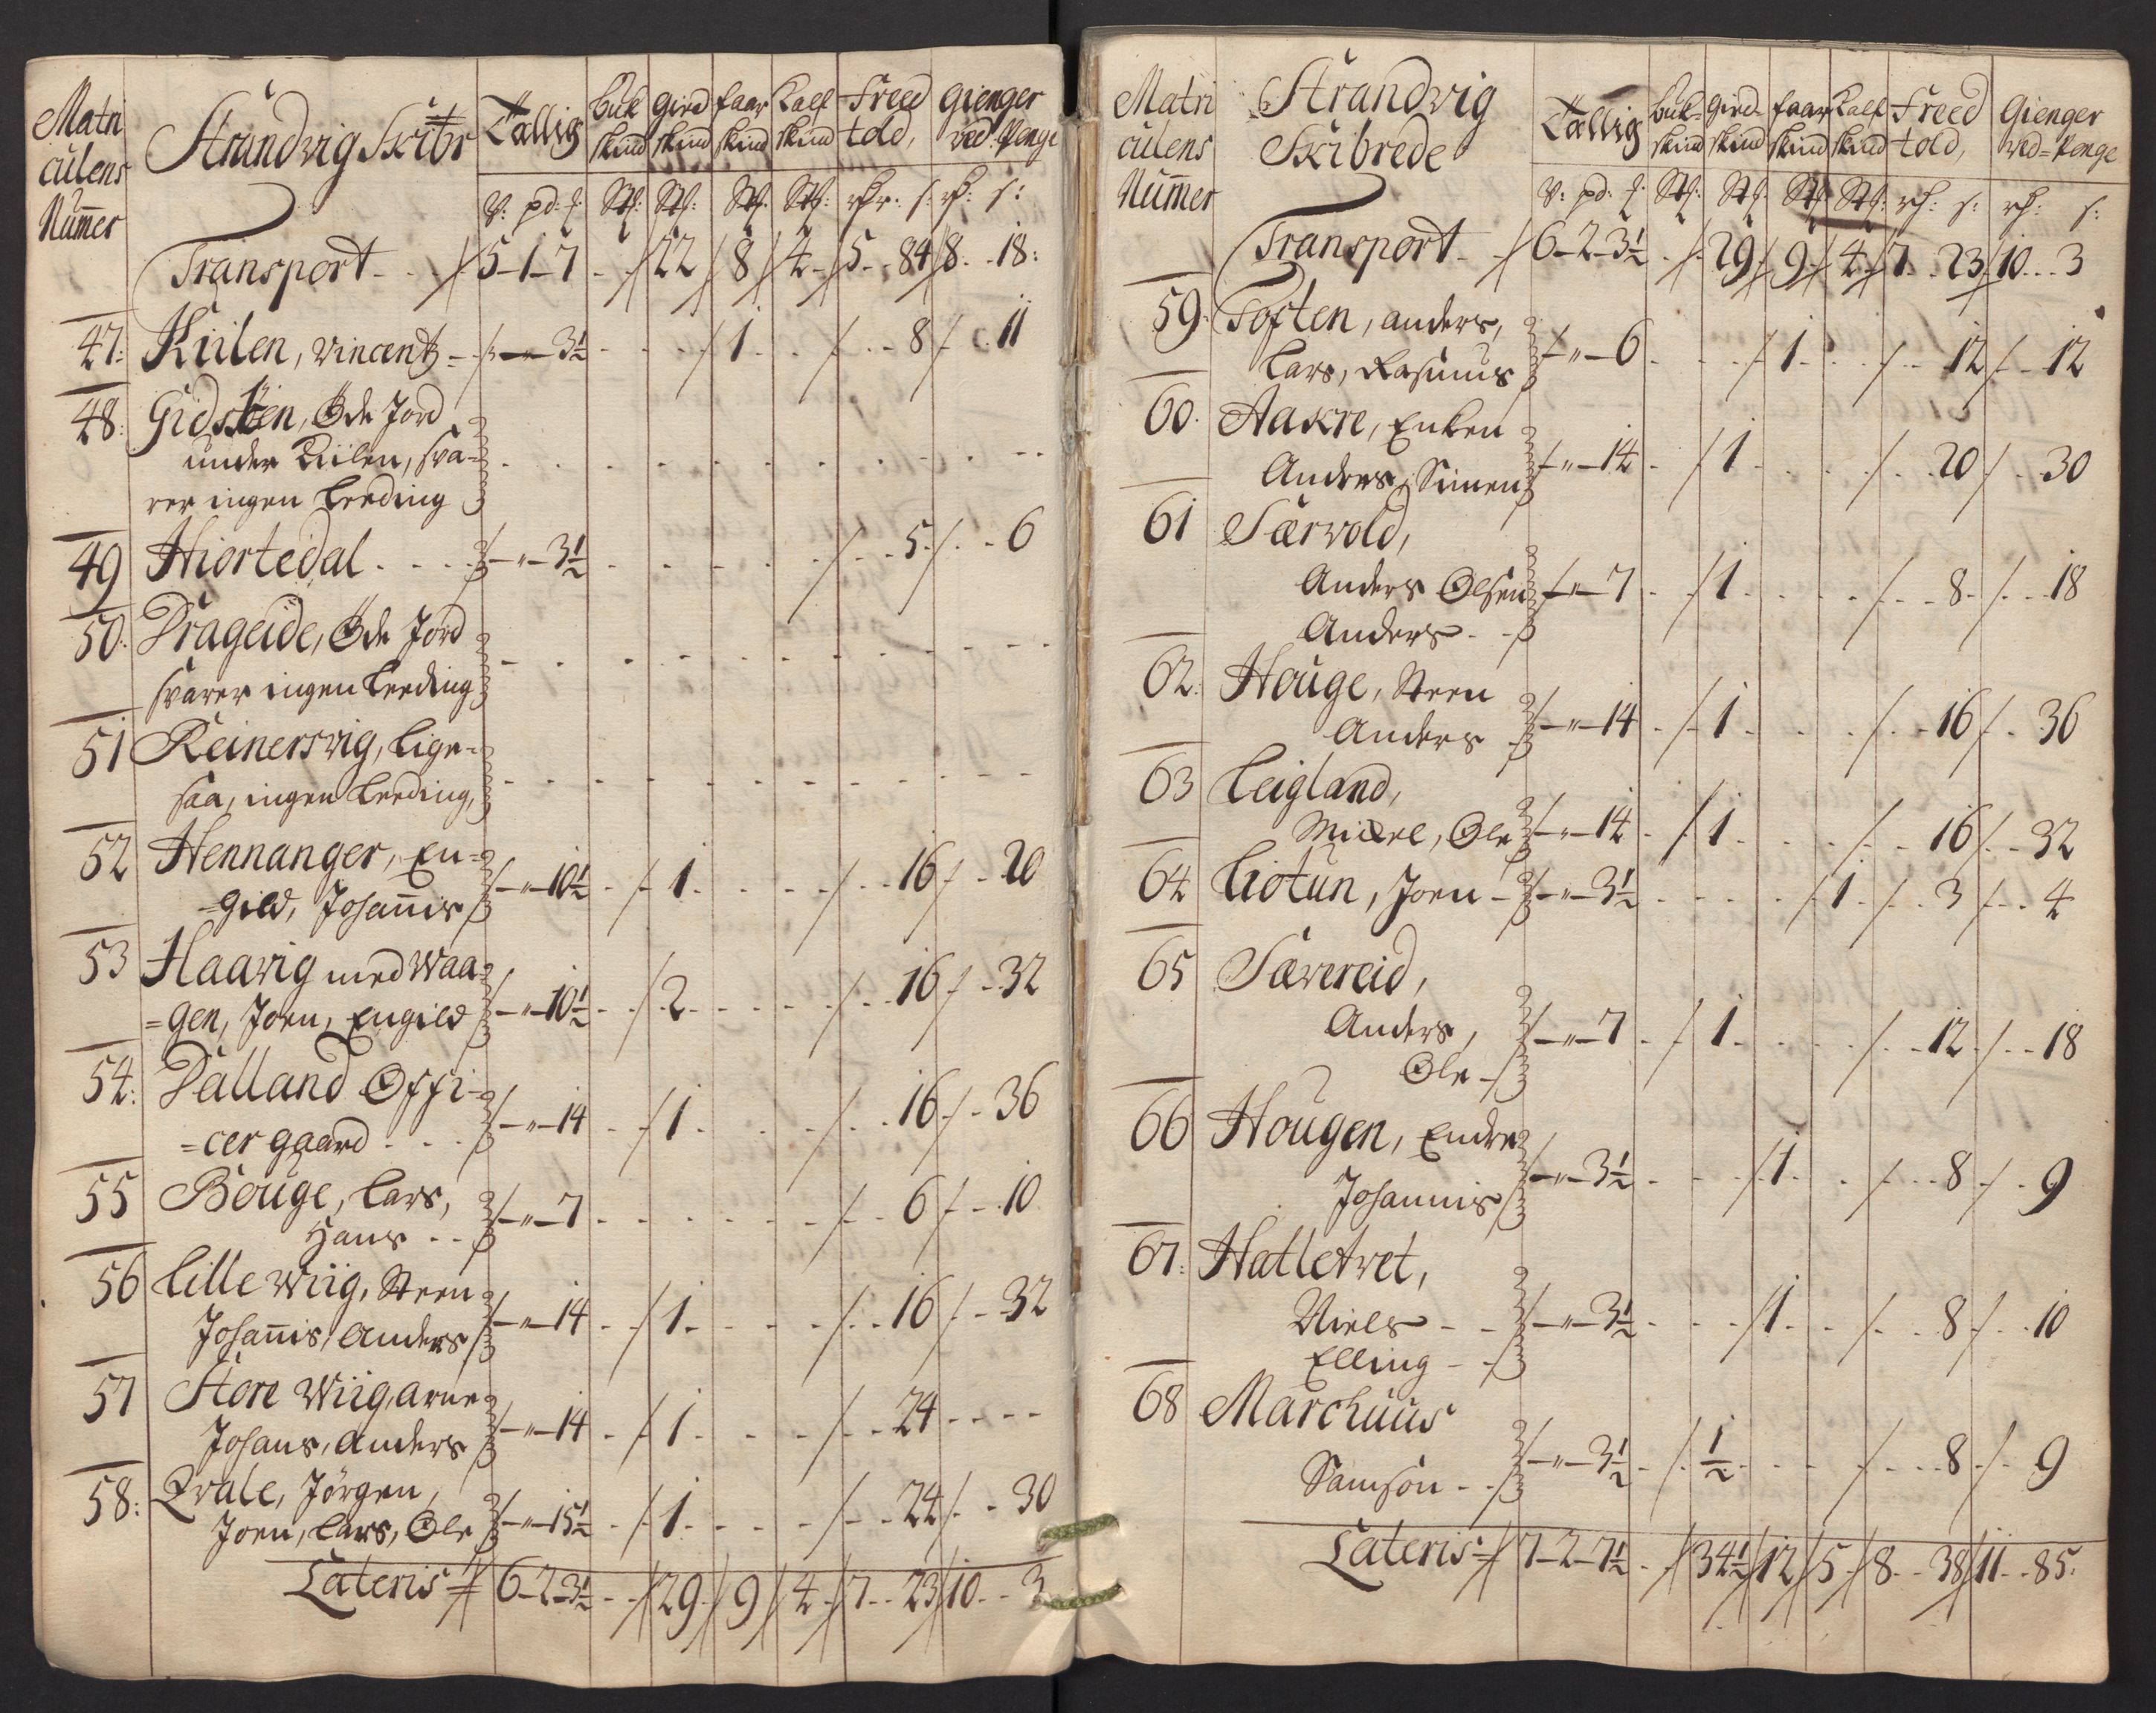 Matri
culens
Numer
Strandvig Skibr
Tallig
Buk
skind
Gied
skind
faar
skind
Kalf
skind
Freed
told,
Gienger
ved Penge
V: pd: l: Stk: Stk: Stk: Stk: rdr: s: rd: s:
Transport - - 5-1-7 - 22 8 4 5 - 84 8 - 18:
47: Kiilen, Vincent - " - 3½ - - 1 - - 8 - 11
48: Gidsøen, Øde Jord
under Kiilen, sva-
rer ingen Leeding
49 Hiortedal - - - " - 3½ - - - - 5 - 6
50: Drageide, Øde Jord
svarer ingen Leeding
51 Reinersvig, lige-
saa, ingen Leeding,
52 Hennanger, En-
=gild, Johannis - " - 10½ - 1 - - - 16 - 20
53 Haavig med Waa-
=gen, Joen, Engild - " - 10½ - 2 - - - 16 - 32
54: Dalland Offi-
=cer gaard - - - " - 14 - 1 - - - 16 - 36
55 Bouge, Lars,
Hans - - - " - 7 - - - - 6 - 10
56 Lille Wiig, Steen
Johannis, Anders - " - 14 - 1 - - - 16 - 32
57 Store Wiig, Arne
Johans, Anders - " - 14 - 1 - - - 24 - - - -
58: Qvale, Jørgen,
Joen, Lars, Ole - " - 15½ - 1 - - - 24 - 30
Lateris 6-2-3½ - 29 9 4 7 - 23 10 - 3
Matri
culens
Numer
Strandvig
Skibrede
Tallig
Buk-
skind
Gied-
skind
faar
skind
Kalf
skind
Freed
told,
Gienger
ved=Penge
V: pd: l: Stk: Stk: Stk: Stk: rd: s: rd: s:
Transport - 6-2-3½ - 29 9 4 7 - 23 10 - 3
59: Toften, Anders,
Lars, Rasmus - " - 6 - - 1 - - 12 - 12
60. Aakre, Enken
Anders, Simen - " - 14 - 1 - - - 20 - 30
61 Særvold,
Anders Olsen - " - 7 - 1 - - - 8 - 18
Anders - -
62: Houge, Steen
Anders - " - 14 - 1 - - - 16 - 36
63 Leigland,
Mickel, Ole - " - 14 - 1 - - - 16 - 32
64 Liotun, Joen - " - 3½ - - - 1 - 3 - 4
65 Sævereid,
Anders, - " - 7 - 1 - - - 12 - 18
Ole -
66 Hougen, Endre
Johannis - " - 3½ - - 1 - - 8 - 9
67: Hatletvet,
Niels - - - " - 3½ - - 1 - - 8 - 10
Elling - -
68 Marchuus
Samson - - - " - 3½ - ½ - - - 8 - 9
Lateris 7-2-7½ - 34½ 12 5 8 - 38 11 - 85: